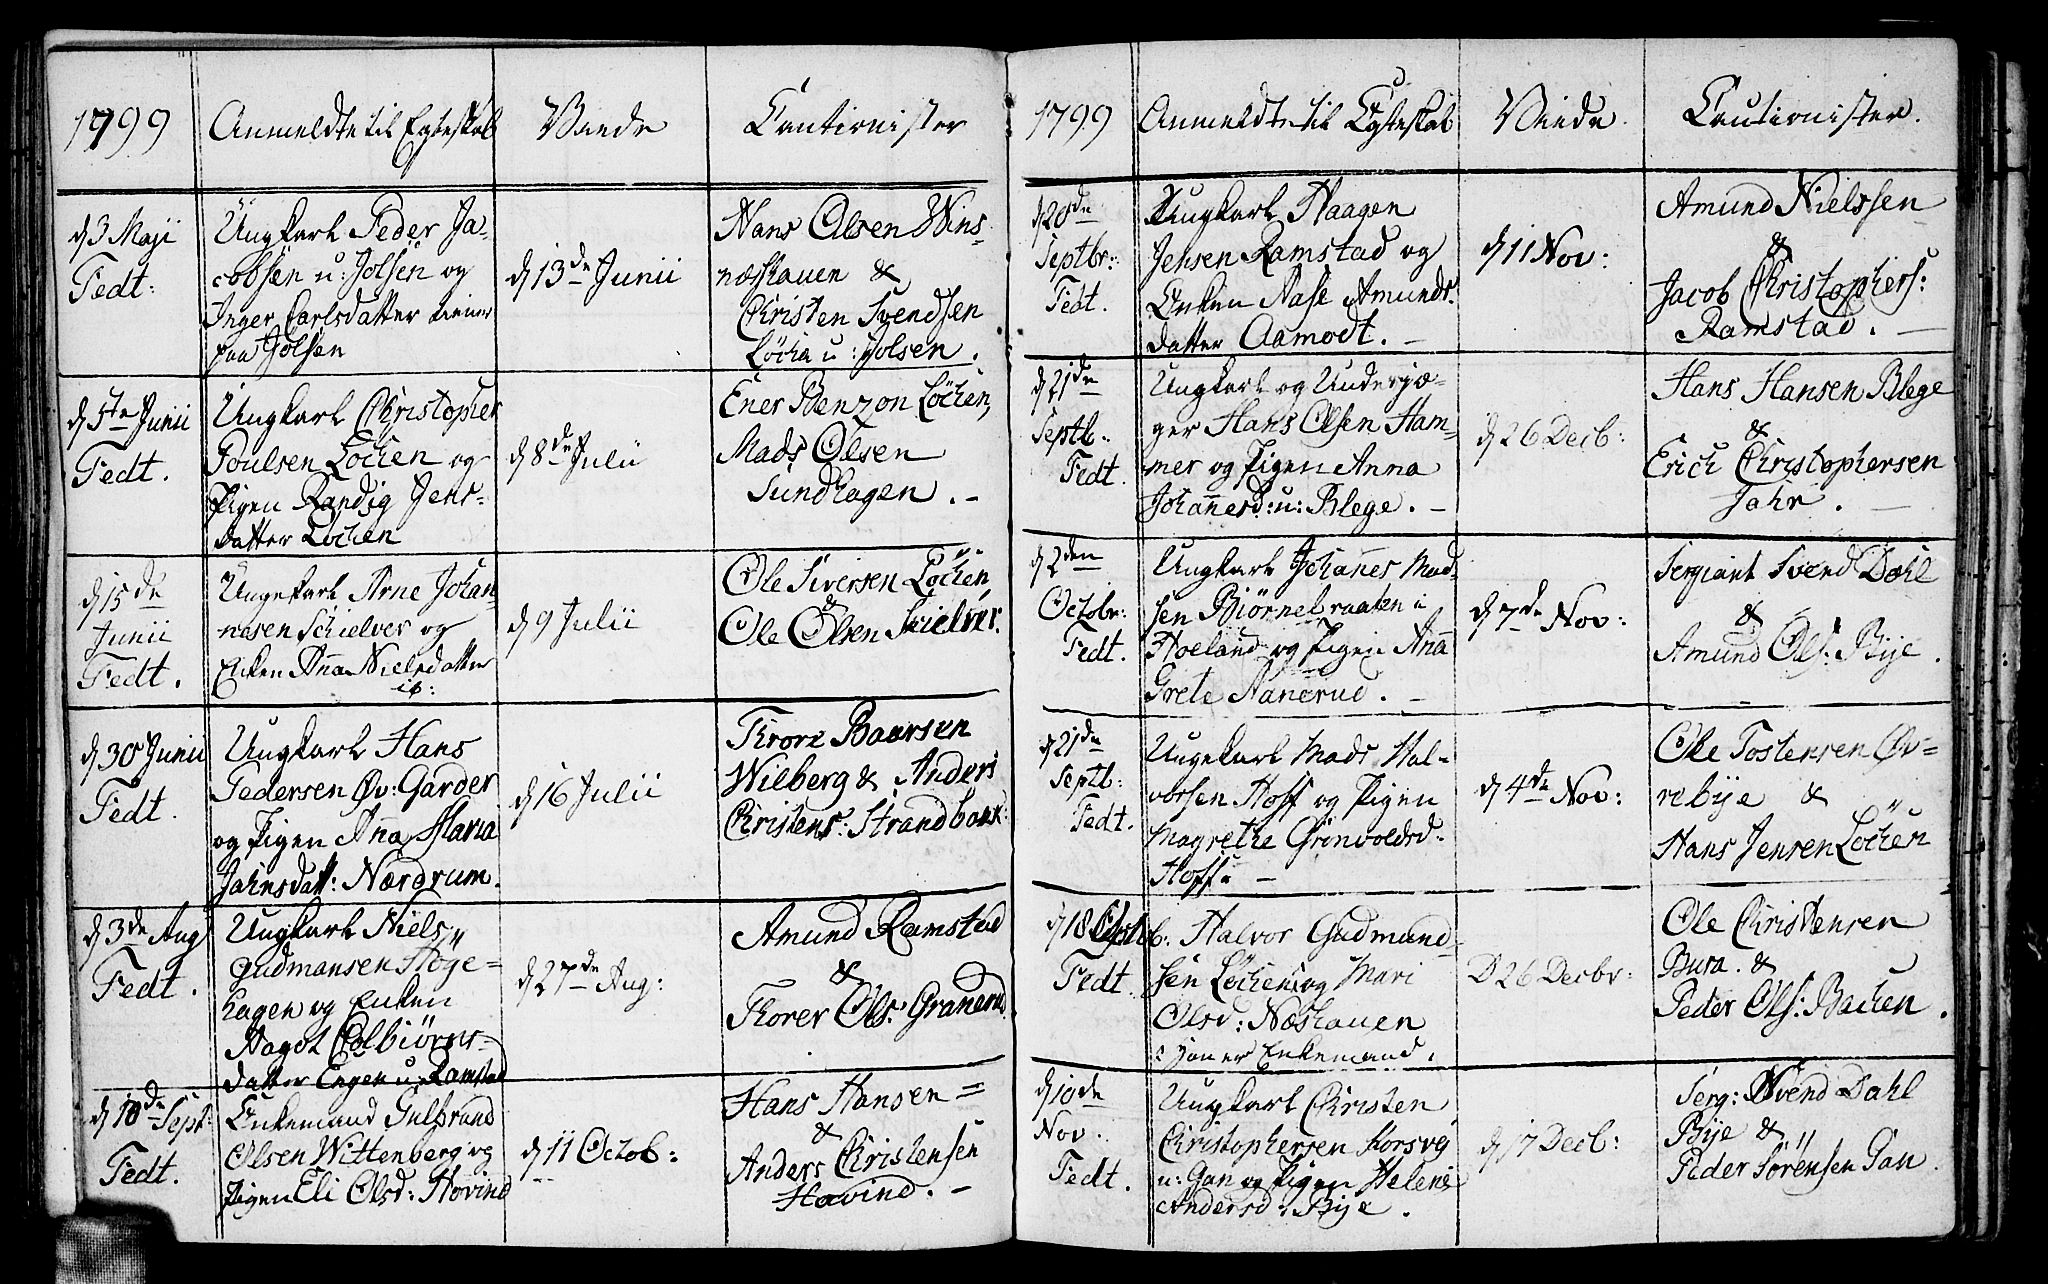 1799
Anmeldte til Egteskab
Viede
Cautionister
d 3 Maji
Fedt:
Ungkarl Peder Ja-
cobsen u: Jølsen og
Inger Carlsdatter tiener
paa Jølsen
d 13de Junii
Hans Olsen Wins-
næshauen &
Christen Svendsen
Løcha u: Jølsen.
d 5te Junii
Fedt.
Ungkarl Christopher
Poulsen Løchen og
Pigen Randig Jens-
datter Løchen
d 8de Julii
Ener Benzon Løchen,
Mads Olsen
Sundhagen. -
d 15de
Junii
Fedt.
Ungekarl Arne Johan-
nesen Schielver og
Enken Anna Nielsdatter
ib:
d 9 Julii
Ole Siversen Løchen
&
Ole Olsen Skielver.
d 30 Junii
Fedt.
Ungkarl Hans
Pedersen Øv: Garder
og Pigen Anna Maria
Jahnsdatt: Nordrum.
d 16 Julii
Thore Baarsen
Wilberg & Anders
Christens: Strandbak:
d 3de Aug
Fedt.
Ungkarl Niels
Gudmansen Høye-
hagen og Enken
Aagot Colbiørns-
datter Engen u. Ramstad
d 27de Aug:
Amund Ramstad
&
Thorer Ols: Granerud.
d 10de Sept:
Fedt.
Enkemand Gulbrand
Olsen Wittenberg og
Pigen Eli Olsd: Hovind
d 11 Octob:
Hans Hansen =
&
Anders Christensen
Hovind. -
1799
Anmeldte til Egteskab
Viede.
Cautionister.
d 20de
Septbr:
Fedt.
Ungkarl Haagen
Jensen Ramstad og
Enken Aase Amunds-
datter Aamodt. -
d 11 Nov:
Amund Nielssen
&
Jacob Christophers:
Ramstad. -
d 21de
Septb:
Fedt.
Ungkarl og Underjæ-
ger Hans Olsen Ham-
mer og Pigen Anna
Johannesd: u: Blege. -
d 26 Decb:
Hans Hansen Blege
&
Erich Christophersen
Jahr. -
d 2den
Octobr:
Fedt.
Ungkarl Johannes Mad-
sen Biørnelraaten i
Høeland og Pigen Ana
Grete Nanerud. -
d 7de Nov:
Sergiant Svend Dahl
&
Amund Ols: Bije.
d 21de
Septb:
Fedt.
Ungekarl Mads Hal-
vorsen Hoff og Pigen
Magrethe Grønvoldsd:
Hoff: -
d 4de Nov:
Ole Tostensen Øv-
rebye &
Hans Jensen Løchen
d 18 Octob:
Fedt
Halvor Gudmund-
sen Løchen og Mari
Olsd: Næshauen
: han er Enkemand.
D 26 Decbr:
Ole Christensen
Bura. &
Peder Ols: Bachen.
d 10de
Nov.
Fedt.
Ungkarl Christen
Christophersen Korsvej
u: Gan og Pigen Helene
Andersd: Bije.
d 17 Decb:
Serg: Svend Dahl
Bije &
Peder Sørensen Gan.